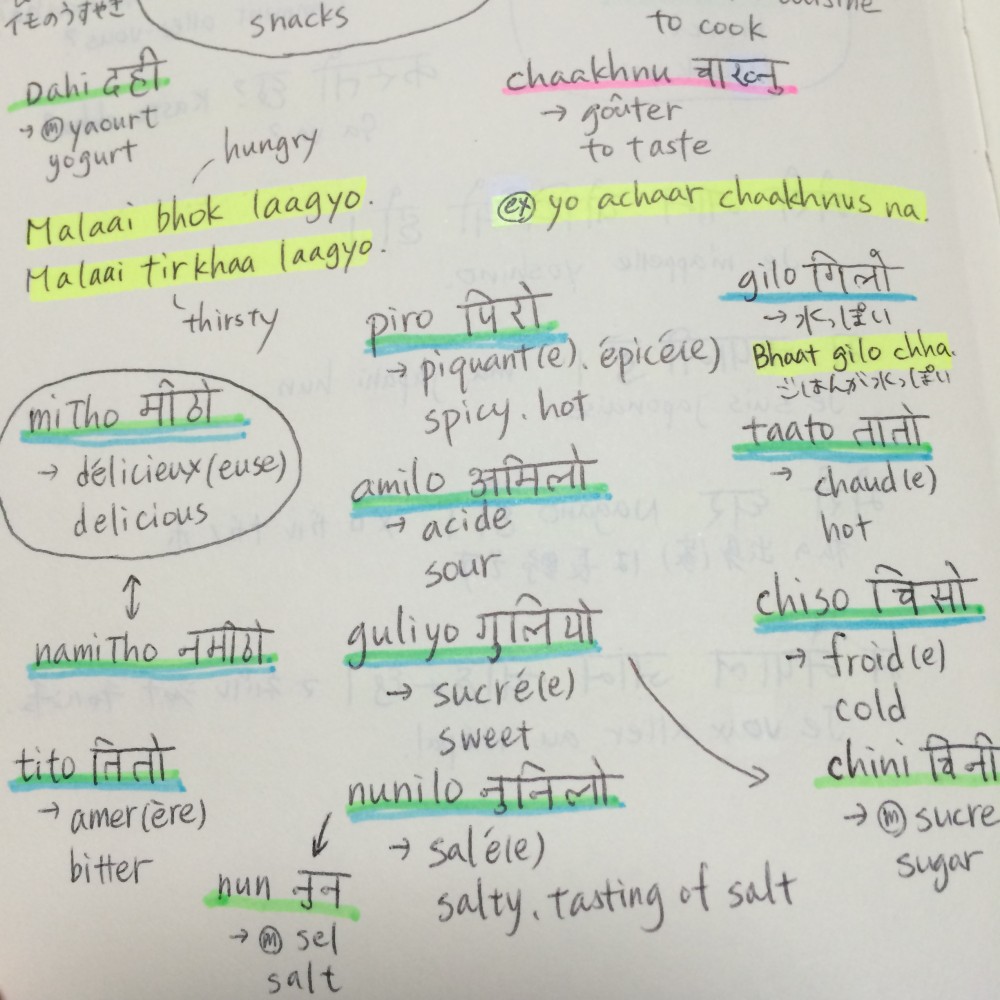 イモのうすやき
snacks
to cook
Dahi दही
→ ⓜ yaourt
yogurt
hungry
Malaai bhok laagyo.
Malaai tirkhaa laagyo.
thirsty
chaakhnu चाख्नु
→ goûter
to taste
ex yo achaar chaakhnus na.
gilo गिलो
→ 水っぽい
Bhaat gilo chha.
ごはんが水っぽい
piro पिरो
→ piquant(e). épicé(e)
spicy. hot
miTho मीठो
→ délicieux(euse)
delicious
↕
namiTho नमीठो
tito तितो
→ amer(ère)
bitter
amilo अमिलो
→ acide
sour
guliyo गुलियो
→ sucré(e)
sweet
nunilo नुनिलो
→ salé(e)
salty. tasting of salt
nun नुन
→ ⓜ sel
salt
taato तातो
→ chaud(e)
hot
chiso चिसो
→ froid(e)
cold
chini चिनी
→ ⓜ sucre
sugar